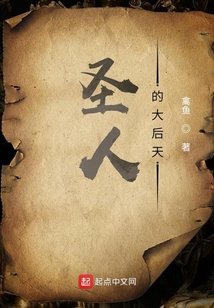 圣人
的大后天
禽鱼 ◎ 著
起点
起点中文网